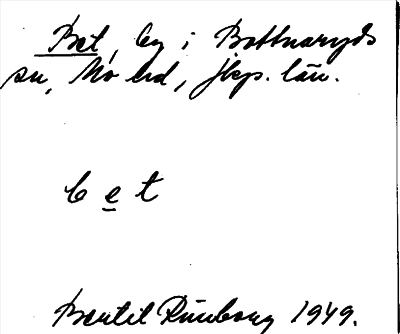 Bet, by i Bottnaryds
sn, Mo hd, jkp. län.
b e t
Bertil Rimborg 1949.